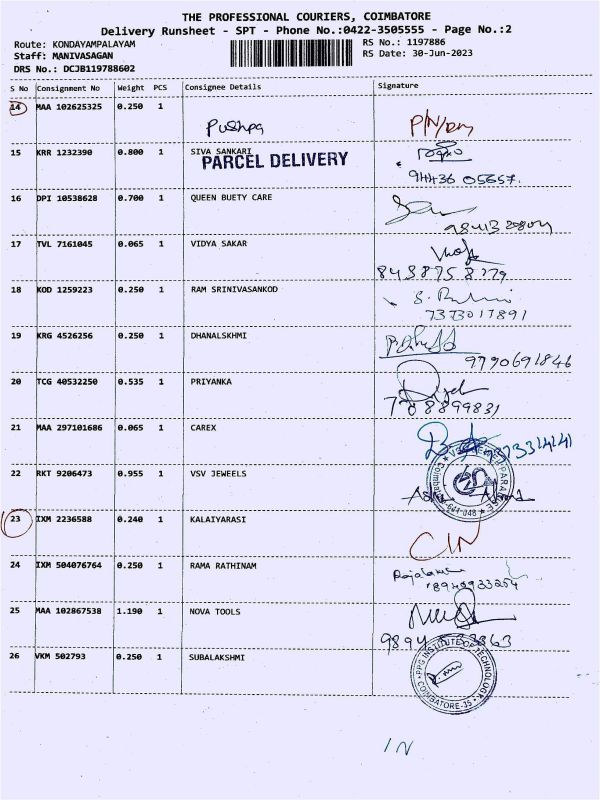 THE PROFESSIONAL COURIERS, COIMBATORE
Delivery Runsheet - SPT - Phone No.:0422-3505555 - Page No.:2
Route: KONDAYAMPALAYAM RS No.: 1197886
Staff: MANIVASAGAN RS Date: 30-Jun-2023
DRS No.: DCJB119788602
S No Consignment No Weight PCS Consignee Details Signature
14 MAA 102625325 0.250 1
Pushpa
15 KRR 1232390 0.800 1 SIVA SANKARI
PARCEL DELIVERY
94436 05657.
16 DPI 10538628 0.700 1 QUEEN BUETY CARE
17 TVL 7161045 0.065 1 VIDYA SAKAR
8438758279
18 KOD 1259223 0.250 1 RAM SRINIVASANKOD
7373017891
19 KRG 4526256 0.250 1 DHANALSKHMI
9790691846
20 TCG 40532250 0.535 1 PRIYANKA
708899831
21 MAA 297101686 0.065 1 CAREX
22 RKT 9206473 0.955 1 VSV JEWEELS
23 IXM 2236588 0.240 1 KALAIYARASI
CIN
24 IXM 504076764 0.250 1 RAMA RATHINAM
25 MAA 102867538 1.190 1 NOVA TOOLS
26 VKM 502793 0.250 1 SUBALAKSHMI
PPG INSTITUTE OF TECHNOLOGY
COIMBATORE-35
IN